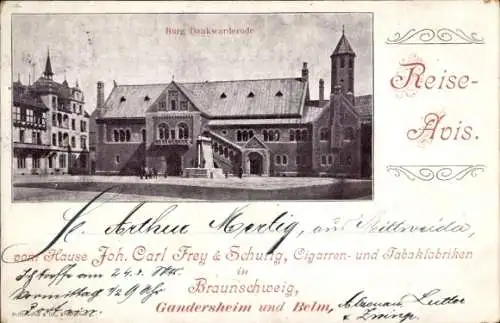 Burg Dankwarderode
Reise-
Avis.
Arthur Mertig, aus Mittweida,
vom Hause Joh. Carl Frey & Schurig, Cigarren- und Tabakfabriken
in
Braunschweig,
Gandersheim und Helm,
am 24. Okt.
Vormittag 1/2 9 Uhr